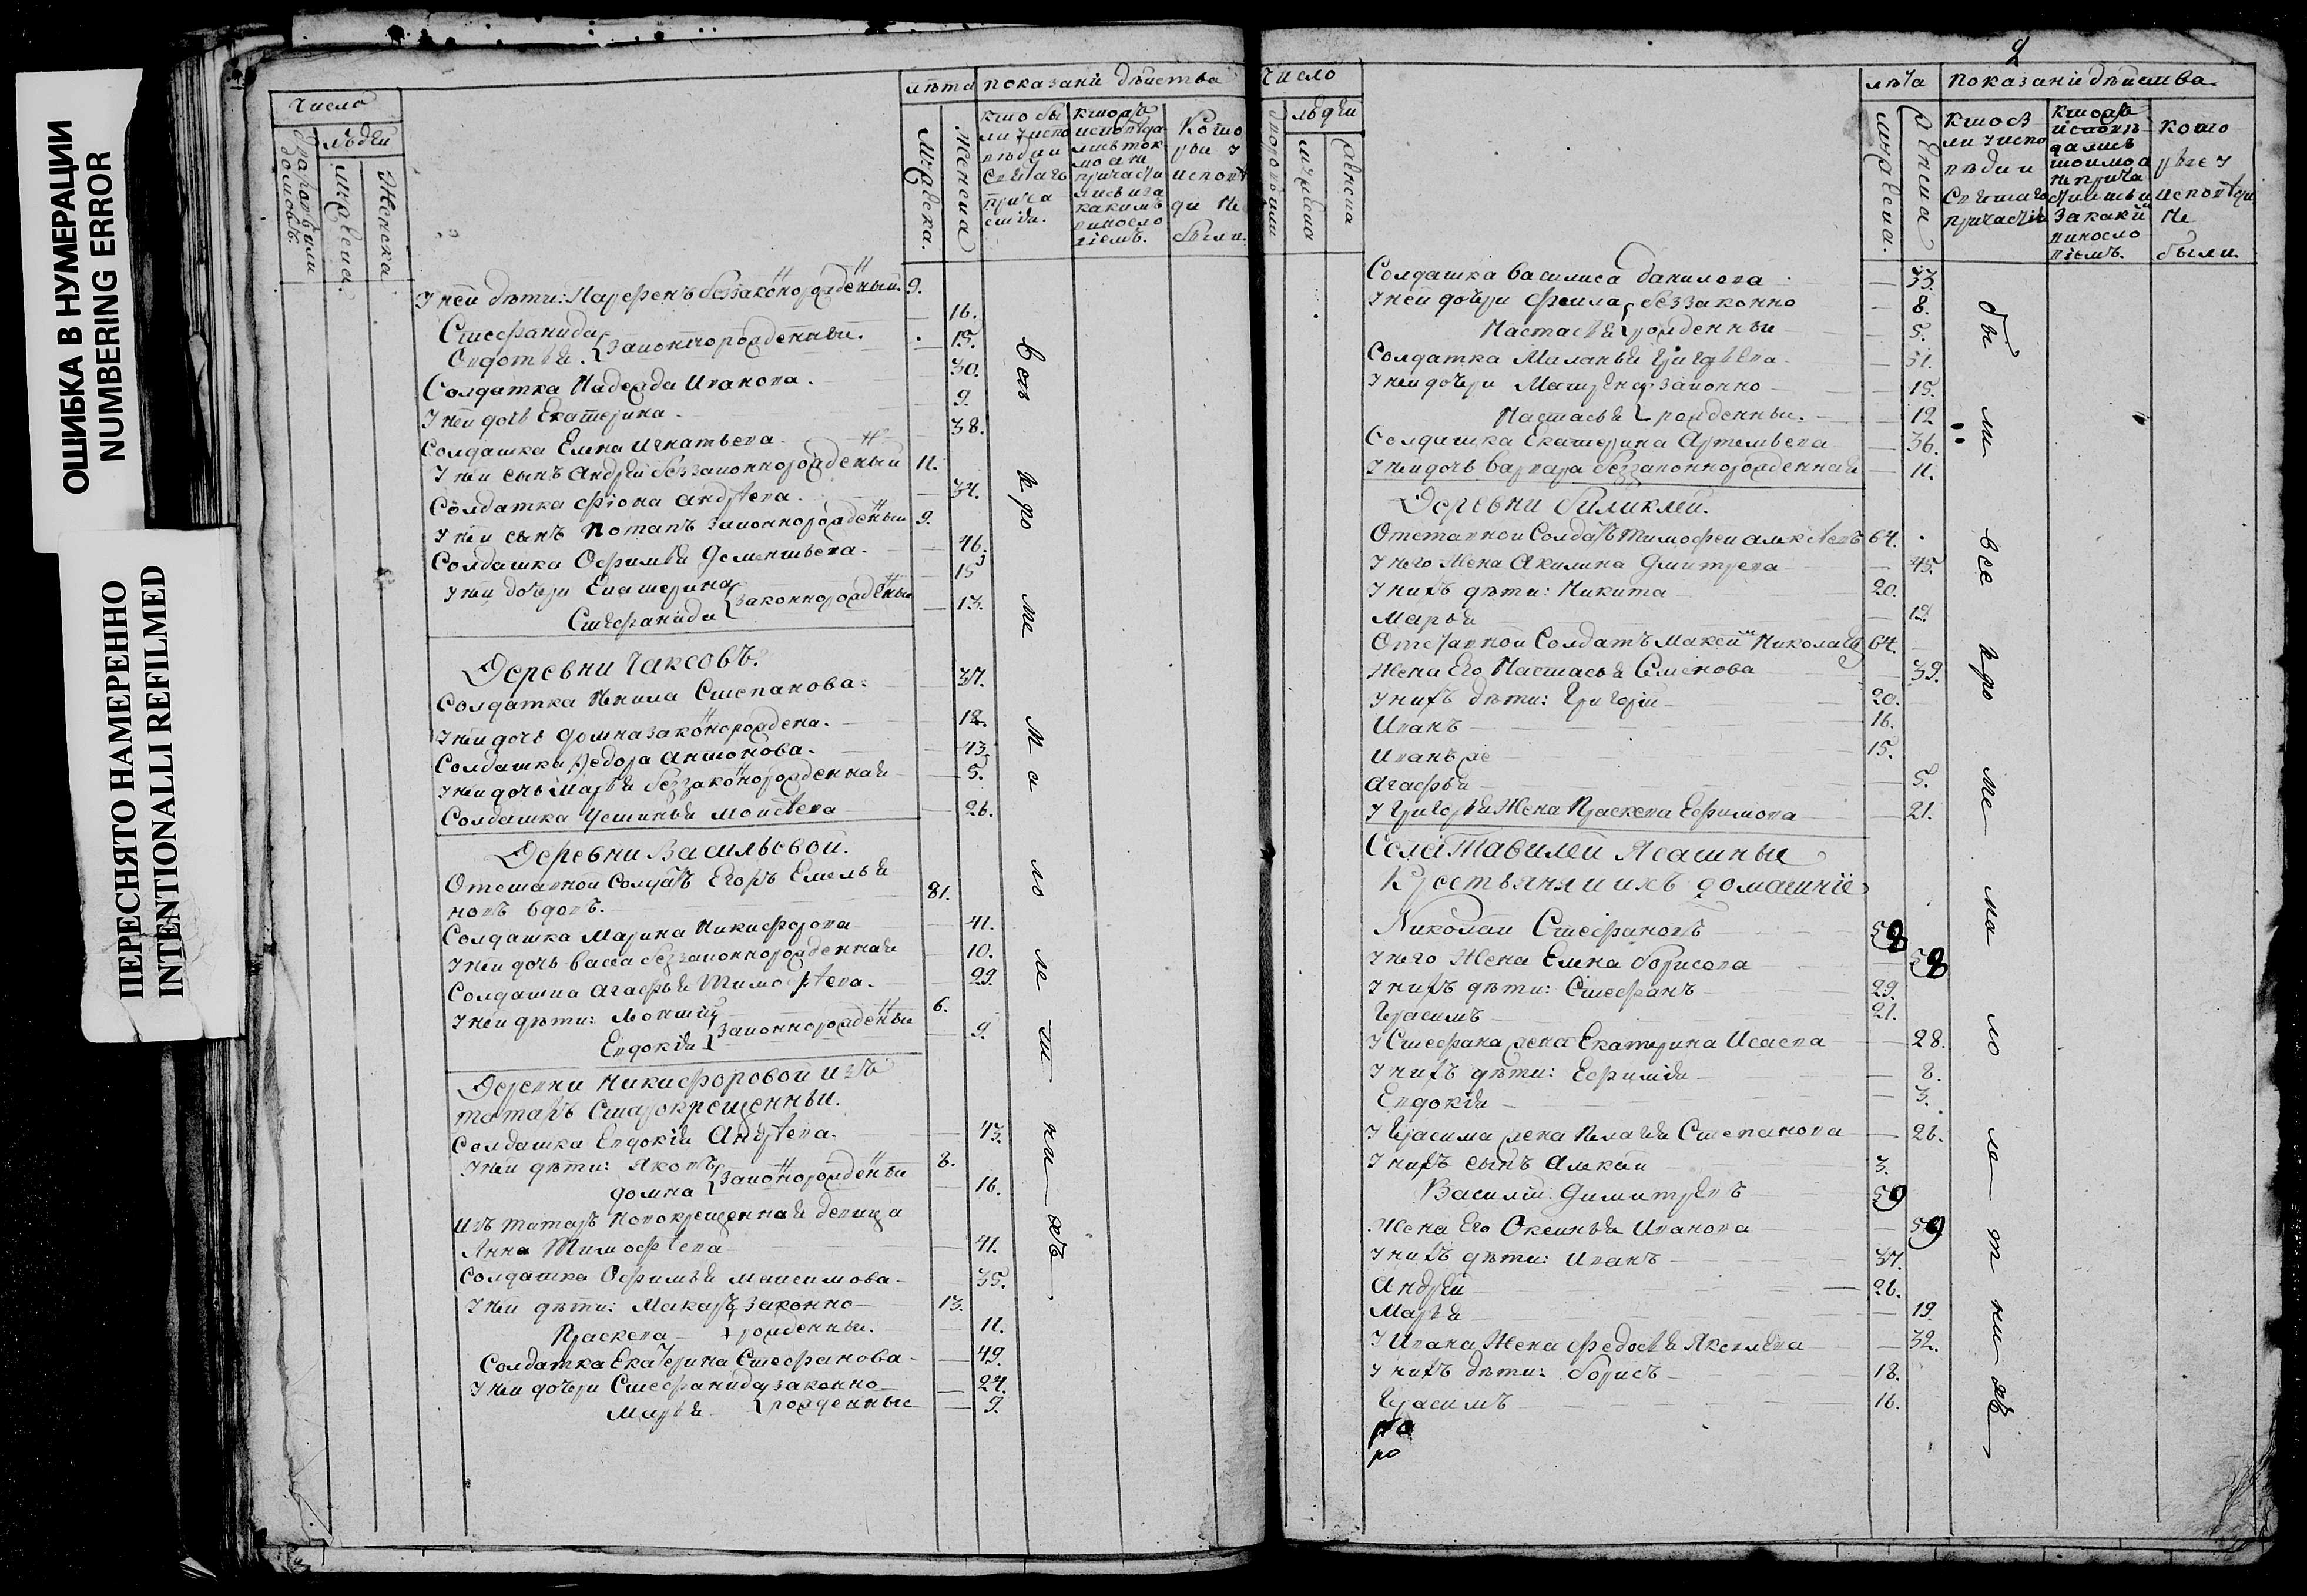 ОШИБКА В НУМЕРАЦИИ
NUMBERING ERROR
ПЕРЕСНЯТО НАМЕРЕННО
INTENTIONALLI REFILMED
Число
людеи
Мужеска.
Женска
лѣта показанiе дѣиства
Мужеска.
Женска
кто бы
ли у испо
вѣди и
святаго
прича
стiя.
Кото
рые у
исповѣ
ди не
были.
У неи дѣти: Парфенъ беззаконорожденый. 9.
16.
Стефанида
Овдотья законнорожденныи. 15.
Солдатка Надежда Иванова. 30.
У неи дочь Екатерина. 9.
Солдатка Елена Игнатьева 38.
У неи сынъ Андреи беззаконнорожденыи 11.
Солдатка Фiона Андрѣева. 34.
У неи сынъ Потапъ законнорожденыи 9.
Солдатка Офимья Дементьева. 46.
У неи дочери Екатерина 15
Стефанида законнорожденыи 13.
Деревни Чаксовъ.
Солдатка Ненила Степанова. 37.
У неи дочь Домна законорождена. 12.
Солдатка Федора Антонова. 43.
У неи дочь Марья беззаконорожденная 5.
Солдатка Устинья Моисѣева 26.
Деревни Васильевои.
Отставнои солдатъ Егоръ Емелья
новъ вдовъ. 81.
Солдатка Марина Никифорова 41.
У неи дочь Васса беззаконнорожденная 10.
Солдатка Агафья Тимофѣева. 29.
У неи дѣти: 6.
Евдокiя законнорожденые 9.
Деревни Никифоровои изъ
татаръ старокрещенныи.
Солдатка Евдокiя Андрѣева. 43.
У неи дѣти: Яковъ 8.
Домна законорожденыи 16.
Изъ татаръ новокрещенная девица
Анна Тимофѣева 41.
Солдатка Офимья Максимова 35.
У неи дѣти: Макаръ законно 13.
Праскева рожденныи. 11.
Солдатка Екатерина Стефанова 49.
У неи дочери Стефанида законно 24.
Марья рожденные 9.
всѣ кро ме ма ло ле т ни хъ
2
Число
людеи
мужеска
женска
лѣта показанiе дѣиства
мужеска.
женска
кото
рые у
исповѣди
не
были.
Солдатка Василиса Данилова 33.
У неи дочери Фекла беззаконно 8.
Настасья рожденныи 5.
Солдатка Маланья Григорьева 51.
У неи дочери Матрена законно 15.
Настасья рожденныи. 12
Солдатка Екатерина Артемьева 36.
У неи дочь Варвара беззаконнорожденная 11.
Деревни Биликлеи.
Отставнои солдатъ Тимофеи Алексѣевъ 64.
У него жена Акилина Дмитрева 45.
У нихъ дѣти: Никита 20.
Марья 12.
Отставнои солдатъ Максим Николаевъ 64.
Жена его Настасья Семенова 39.
У нихъ дѣти: Григорiи 20.
Иванъ 16.
Иванъ же 15.
Агафья 5.
У Григорья жена Праскева Ефимова 21.
Села Тавилеи ясашныи
крестьяня и ихъ домашнiе
Николаи Стефановъ 58
У него жена Елена Борисова 58
У нихъ дѣти: Стефанъ 29.
Герасимъ 21.
У Стефана жена Екатерина Исаева 28.
У нихъ дѣти: Ефимiя 8.
Евдокiя 3.
У Герасима жена Пелагея Степанова 26.
У нихъ сынъ Алексеи 3.
Василiи Димитревъ 59
Жена его Оксинья Иванова 59
У нихъ дѣти: Иванъ 37.
Андреи 26.
Марья 19.
У Ивана жена Федосья Яковлева 32.
У нихъ дѣти: Борисъ 18.
Герасимъ 16.
ро
ро
бы ли все кро ме ма ло ле т ни хъ